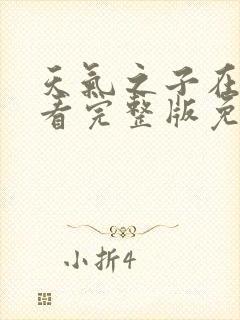 天氣之子在
看完整版免
小折4